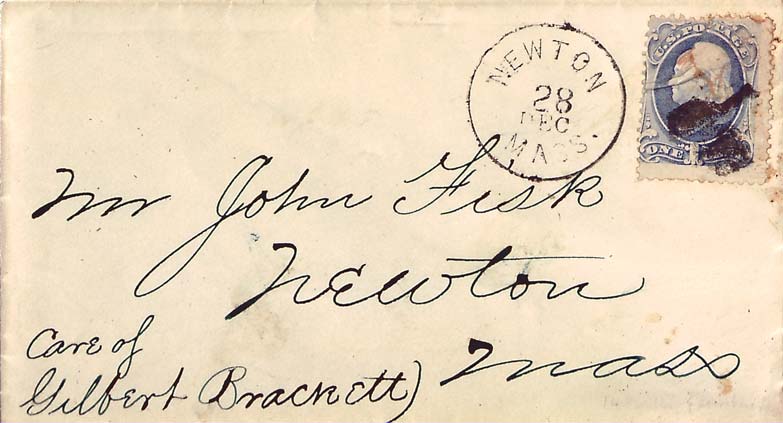 NEWTON
28
DEC
MASS.
U.S. POSTAGE
ONE
Mr John Fisk
Newton
Mass
Care of
Gilbert Brackett)